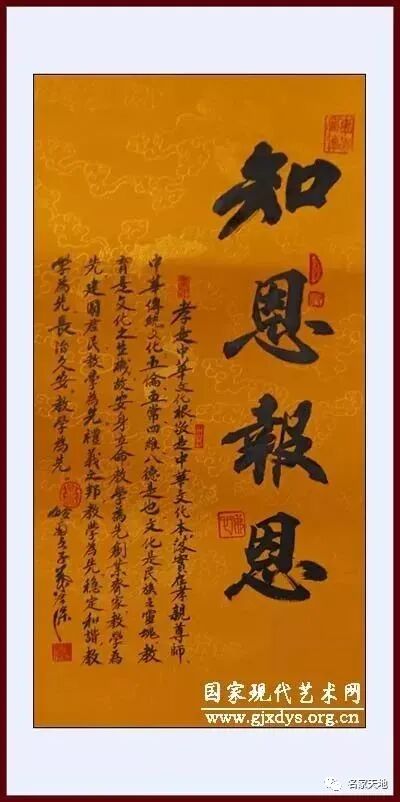 知恩報恩
孝是中華文化根敬是中華文化本落實在孝親尊師
中華傳統文化五倫五常四維八德是也文化是民族之靈魂教
育是文化之生機故安身立命教學為先創業齊家教學為
先建國君民教學為先禮義之邦教學為先穩定和諧教
學為先長治久安教學為先
国家现代艺术网
www.gjxdys.org.cn
名家天地